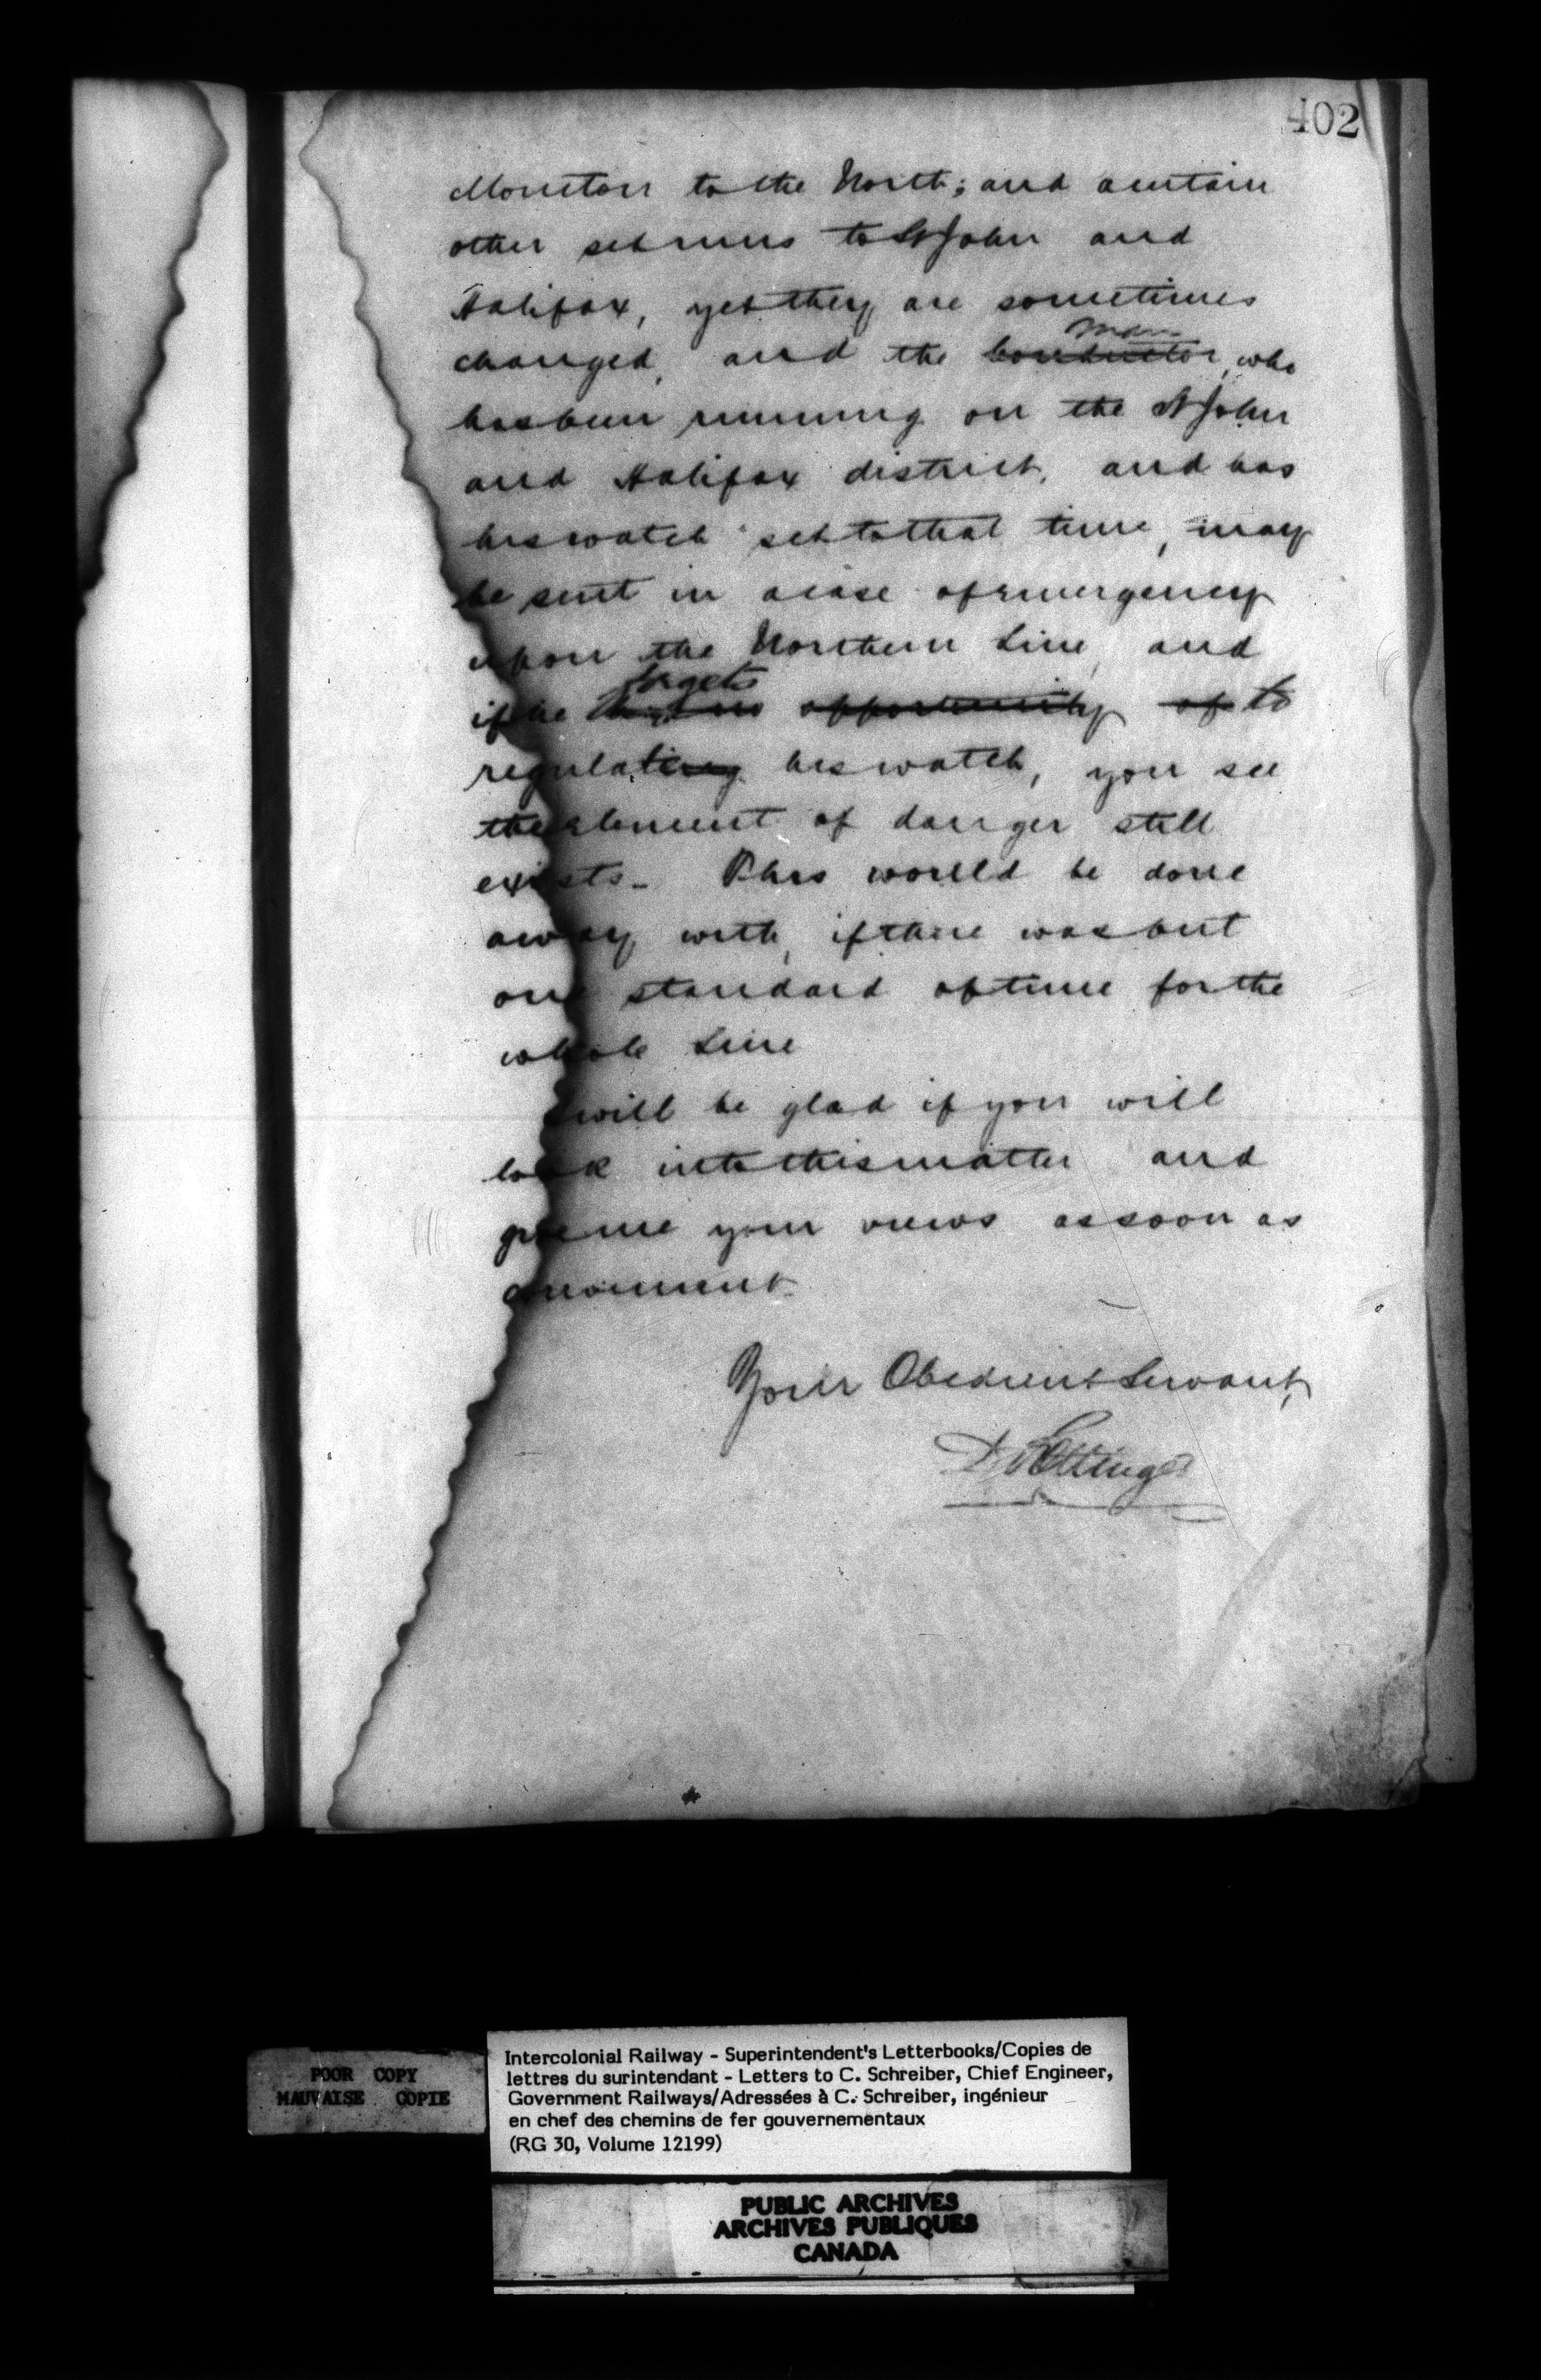 402
Moncton to the North; and a certain
other set runs to St John and
Halifax, yet they are sometimes
man
changed, and the conductor, who
has been running on the St John
and Halifax district, and has
his watch set to that time, may
be sent in a case of emergency
upon the Northern Line, and
forgets
if he has no opportunity of to
regulating his watch, you see
the element of danger still
exists - This would be done
away with, if there was but
one standard of time for the
whole Line
I will be glad if you will
look into this matter and
give me your views as soon as
convenient.
Your Obedient Servant,
D Pottinger
POOR COPY
MAUVAISE COPIE
Intercolonial Railway - Superintendent's Letterbooks/Copies de
lettres du surintendant - Letters to C. Schreiber, Chief Engineer,
Government Railways/Adressées à C. Schreiber, ingénieur
en chef des chemins de fer gouvernementaux
(RG 30, Volume 12199)
PUBLIC ARCHIVES
ARCHIVES PUBLIQUES
CANADA